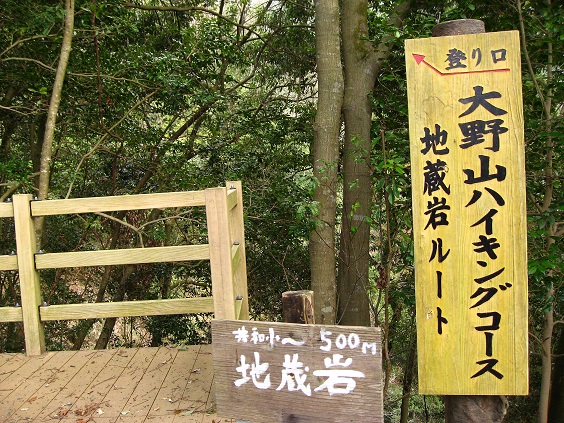 登り口
大野山ハイキングコース
地蔵岩ルート
共和小〜500m
地蔵岩